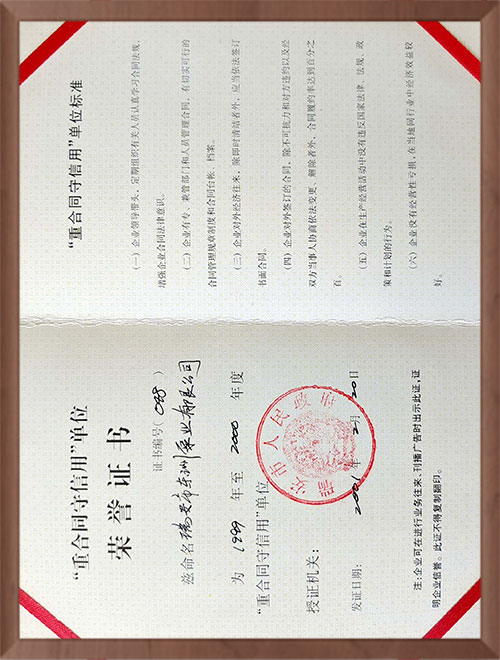 “重合同守信用”单位
荣誉证书
证书编号（048）
兹命名瑞安市东洲泵业有限公司
为 1999 年至 2000 年度
“重合同守信用”单位
授证机关：
瑞安市人民政府
发证日期： 2001 年 2 月 20 日
注：企业可在进行业务往来、刊播广告时出示此证，证
明企业信誉。此证不得复制翻印。
“重合同守信用”单位标准
（一）企业领导带头，定期组织有关人员认真学习合同法规，
增强企业合同法律意识。
（二）企业有专、兼管部门和人员管理合同，有切实可行的
合同管理规章制度和合同台帐、档案。
（三）企业对外经济往来，除即时清结者外，应当依法签订
书面合同。
（四）企业对外签订的合同，除不可抗力和对方违约以及经
双方当事人协商依法变更、解除者外，合同履约率达到百分之
百。
（五）企业在生产经营活动中没有违反国家法律、法规、政
策和计划的行为。
（六）企业没有经营性亏损，在当地同行业中经济效益较
好。